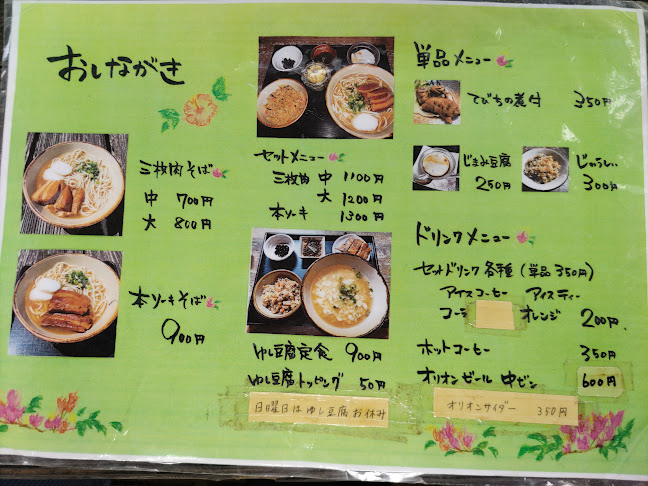 おしながき
三枚肉そば
中 700円
大 800円
本ソーキそば
900円
セットメニュー
三枚肉 中 1100円
大 1200円
本ソーキ 1300円
ゆし豆腐定食 900円
ゆし豆腐トッピング 50円
日曜日はゆし豆腐お休み
単品メニュー
てびちの煮付 350円
じーまみ豆腐
250円
じゅうしぃ
300円
ドリンクメニュー
セットドリンク各種(単品350円)
アイスコーヒー アイスティー
コーラ オレンジ 200円
ホットコーヒー 350円
オリオンビール 中ビン 600円
オリオンサイダー 350円